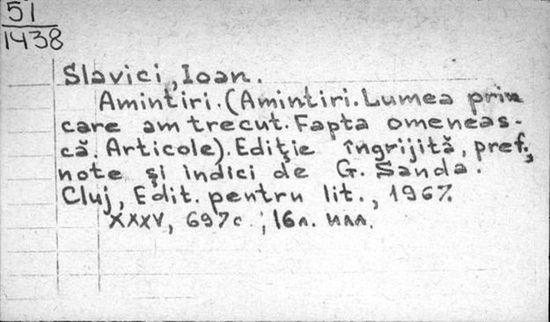 51
1438
Slavici, Ioan.
Amintiri. (Amintiri. Lumea prin
care am trecut. Fapta omeneas-
că. Articole). Ediţie îngrijită, pref.,
note şi indici de G. Sanda.
Cluj, Edit. pentru lit., 1967.
XXXV, 697 с.; 16 л. илл.